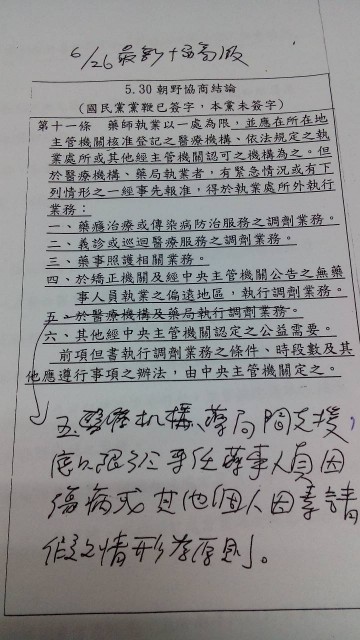 6/26 最新
5.30 朝野協商結論
(國民黨黨鞭已簽字，本黨未簽字)
第十一條 藥師執業以一處為限，並應在所在地
主管機關核准登記之醫療機構、依法規定之執
業處所或其他經主管機關認可之機構為之。但
於醫療機構、藥局執業者，有緊急情況或有下
列情形之一經事先報准，得於執業處所外執行
業務：
一、藥癮治療或傳染病防治服務之調劑業務。
二、義診或巡迴醫療服務之調劑業務。
三、藥事照護相關業務。
四、於矯正機關及經中央主管機關公告之無藥
事人員執業之偏遠地區，執行調劑業務。
五、於醫療機構及藥局執行調劑業務。
六、其他經中央主管機關認定之公益需要。
前項但書執行調劑業務之條件、時段數及其
他應遵行事項之辦法，由中央主管機關定之。
五、醫療機構、藥局間支援，
應只限於專任藥事人員因
傷病或其他個人因素請
假之情形為原則」。